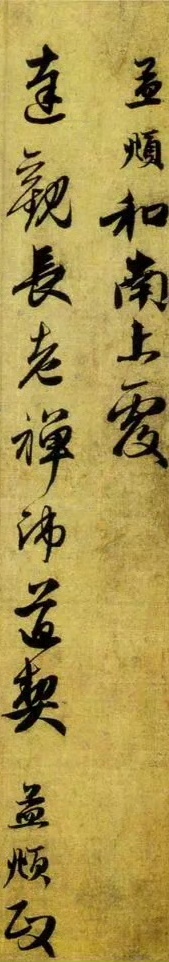 孟頫和南上覆
達觀長老禪師道契 孟頫政